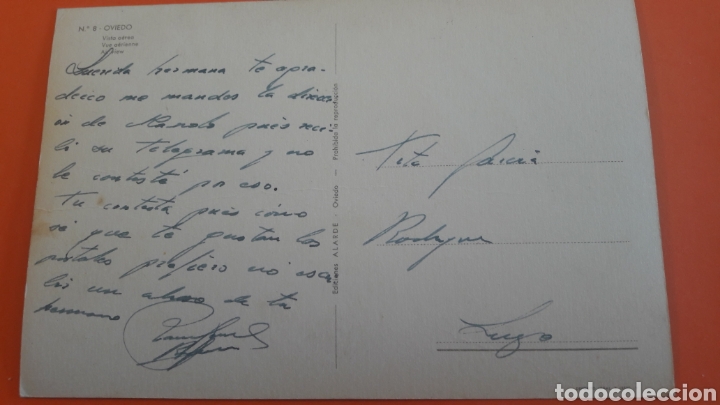 N.º 8 - OVIEDO
Vista aérea
Vue aérienne
Air View
Querida hermana te agra-
dezco me mandes la direcci
ón de Manolo pues reci
bí su telegrama y no
le contesté por eso.
Tu contesta pues cómo
sé que te gustan las
postales prefiero no esca
un abrazo de tu
hermano
Ediciones ALARDE - Oviedo — Prohibida la reproducción
Tito García
Rodríguez
Lugo
todocoleccion.net